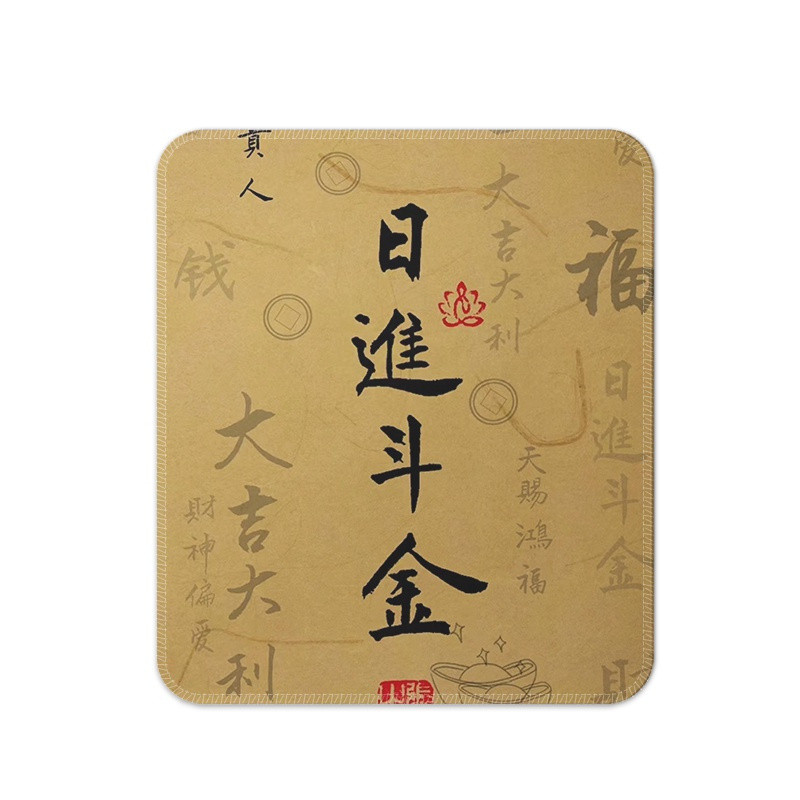 日進斗金
貴人
大吉大利
福
愛
日進斗金
財
天賜鴻福
钱
大吉大利
財神偏爱